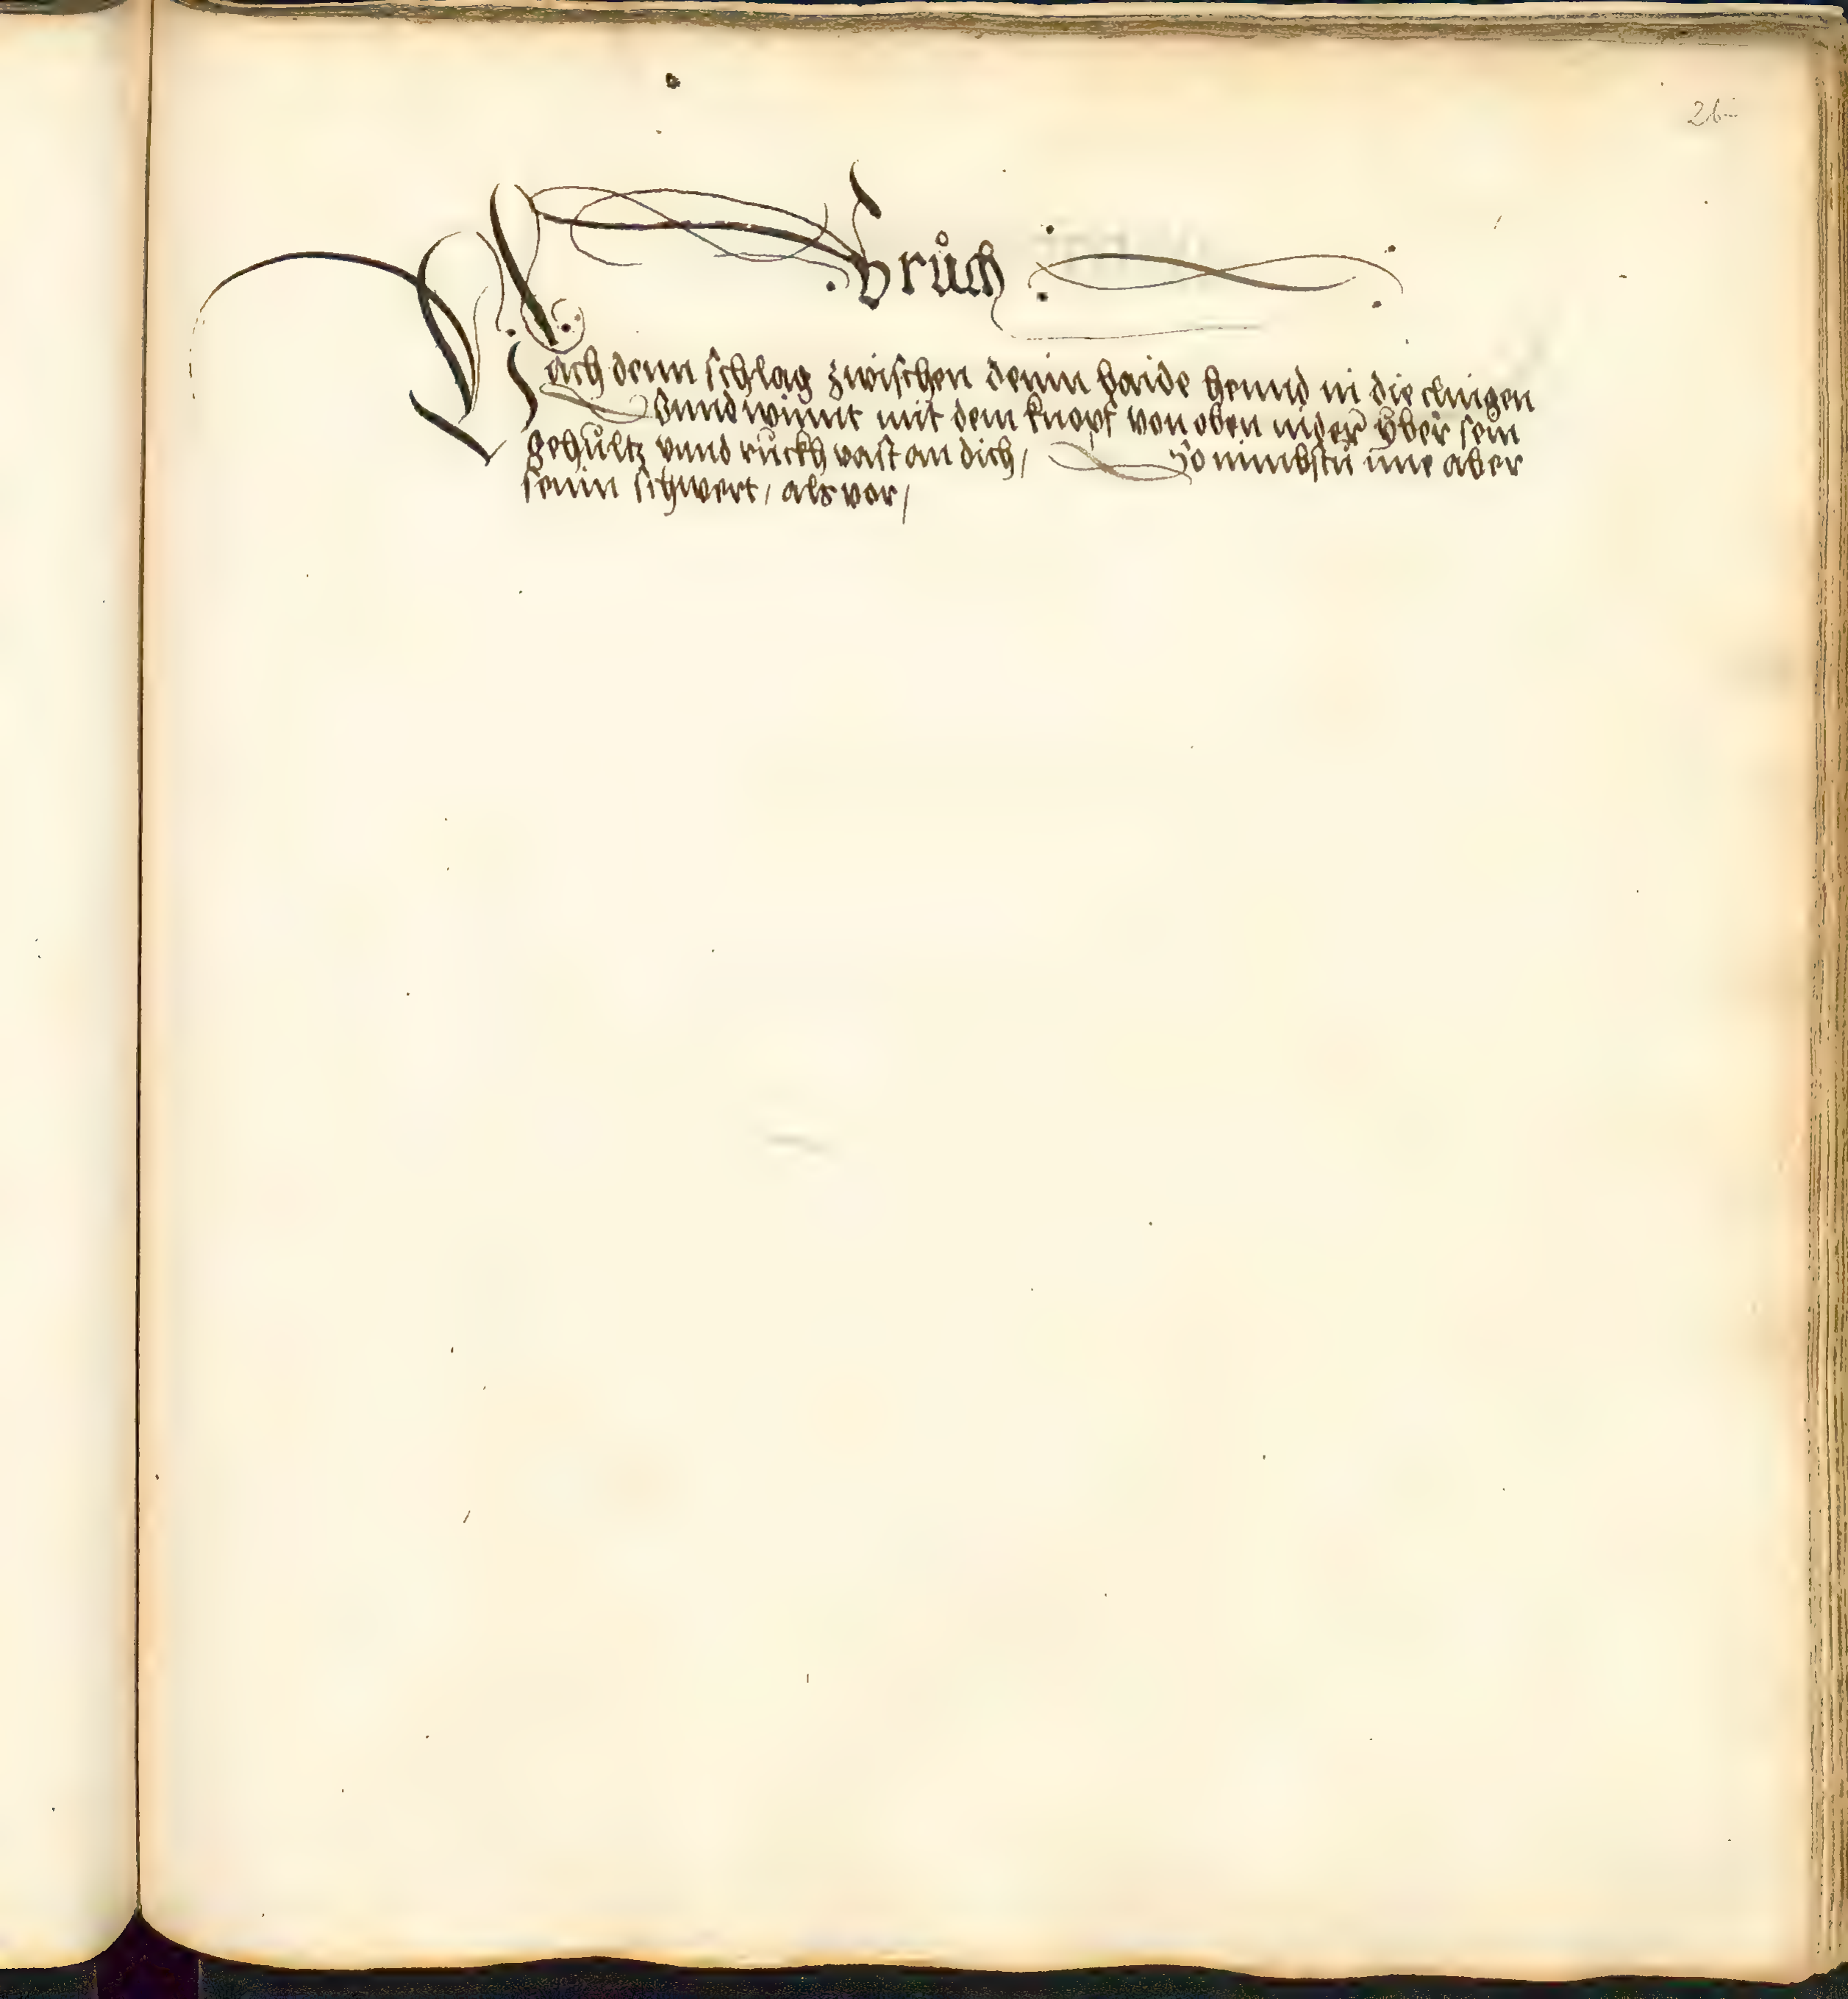 26
Brůch
Nach dem schlag zwischen denin baide hennd in die clingen
Vnnd winnt mit dem knopf von oben nider vber sein
gehůltz vnnd růckh vast an dich /      So nimbstu ime aber
seinn schwert / als vor /